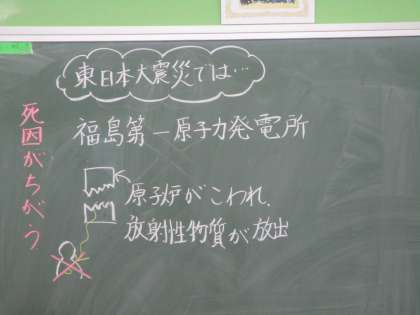 東日本大震災では…
死因がちがう
福島第一原子力発電所
原子炉がこわれ、
放射性物質が放出